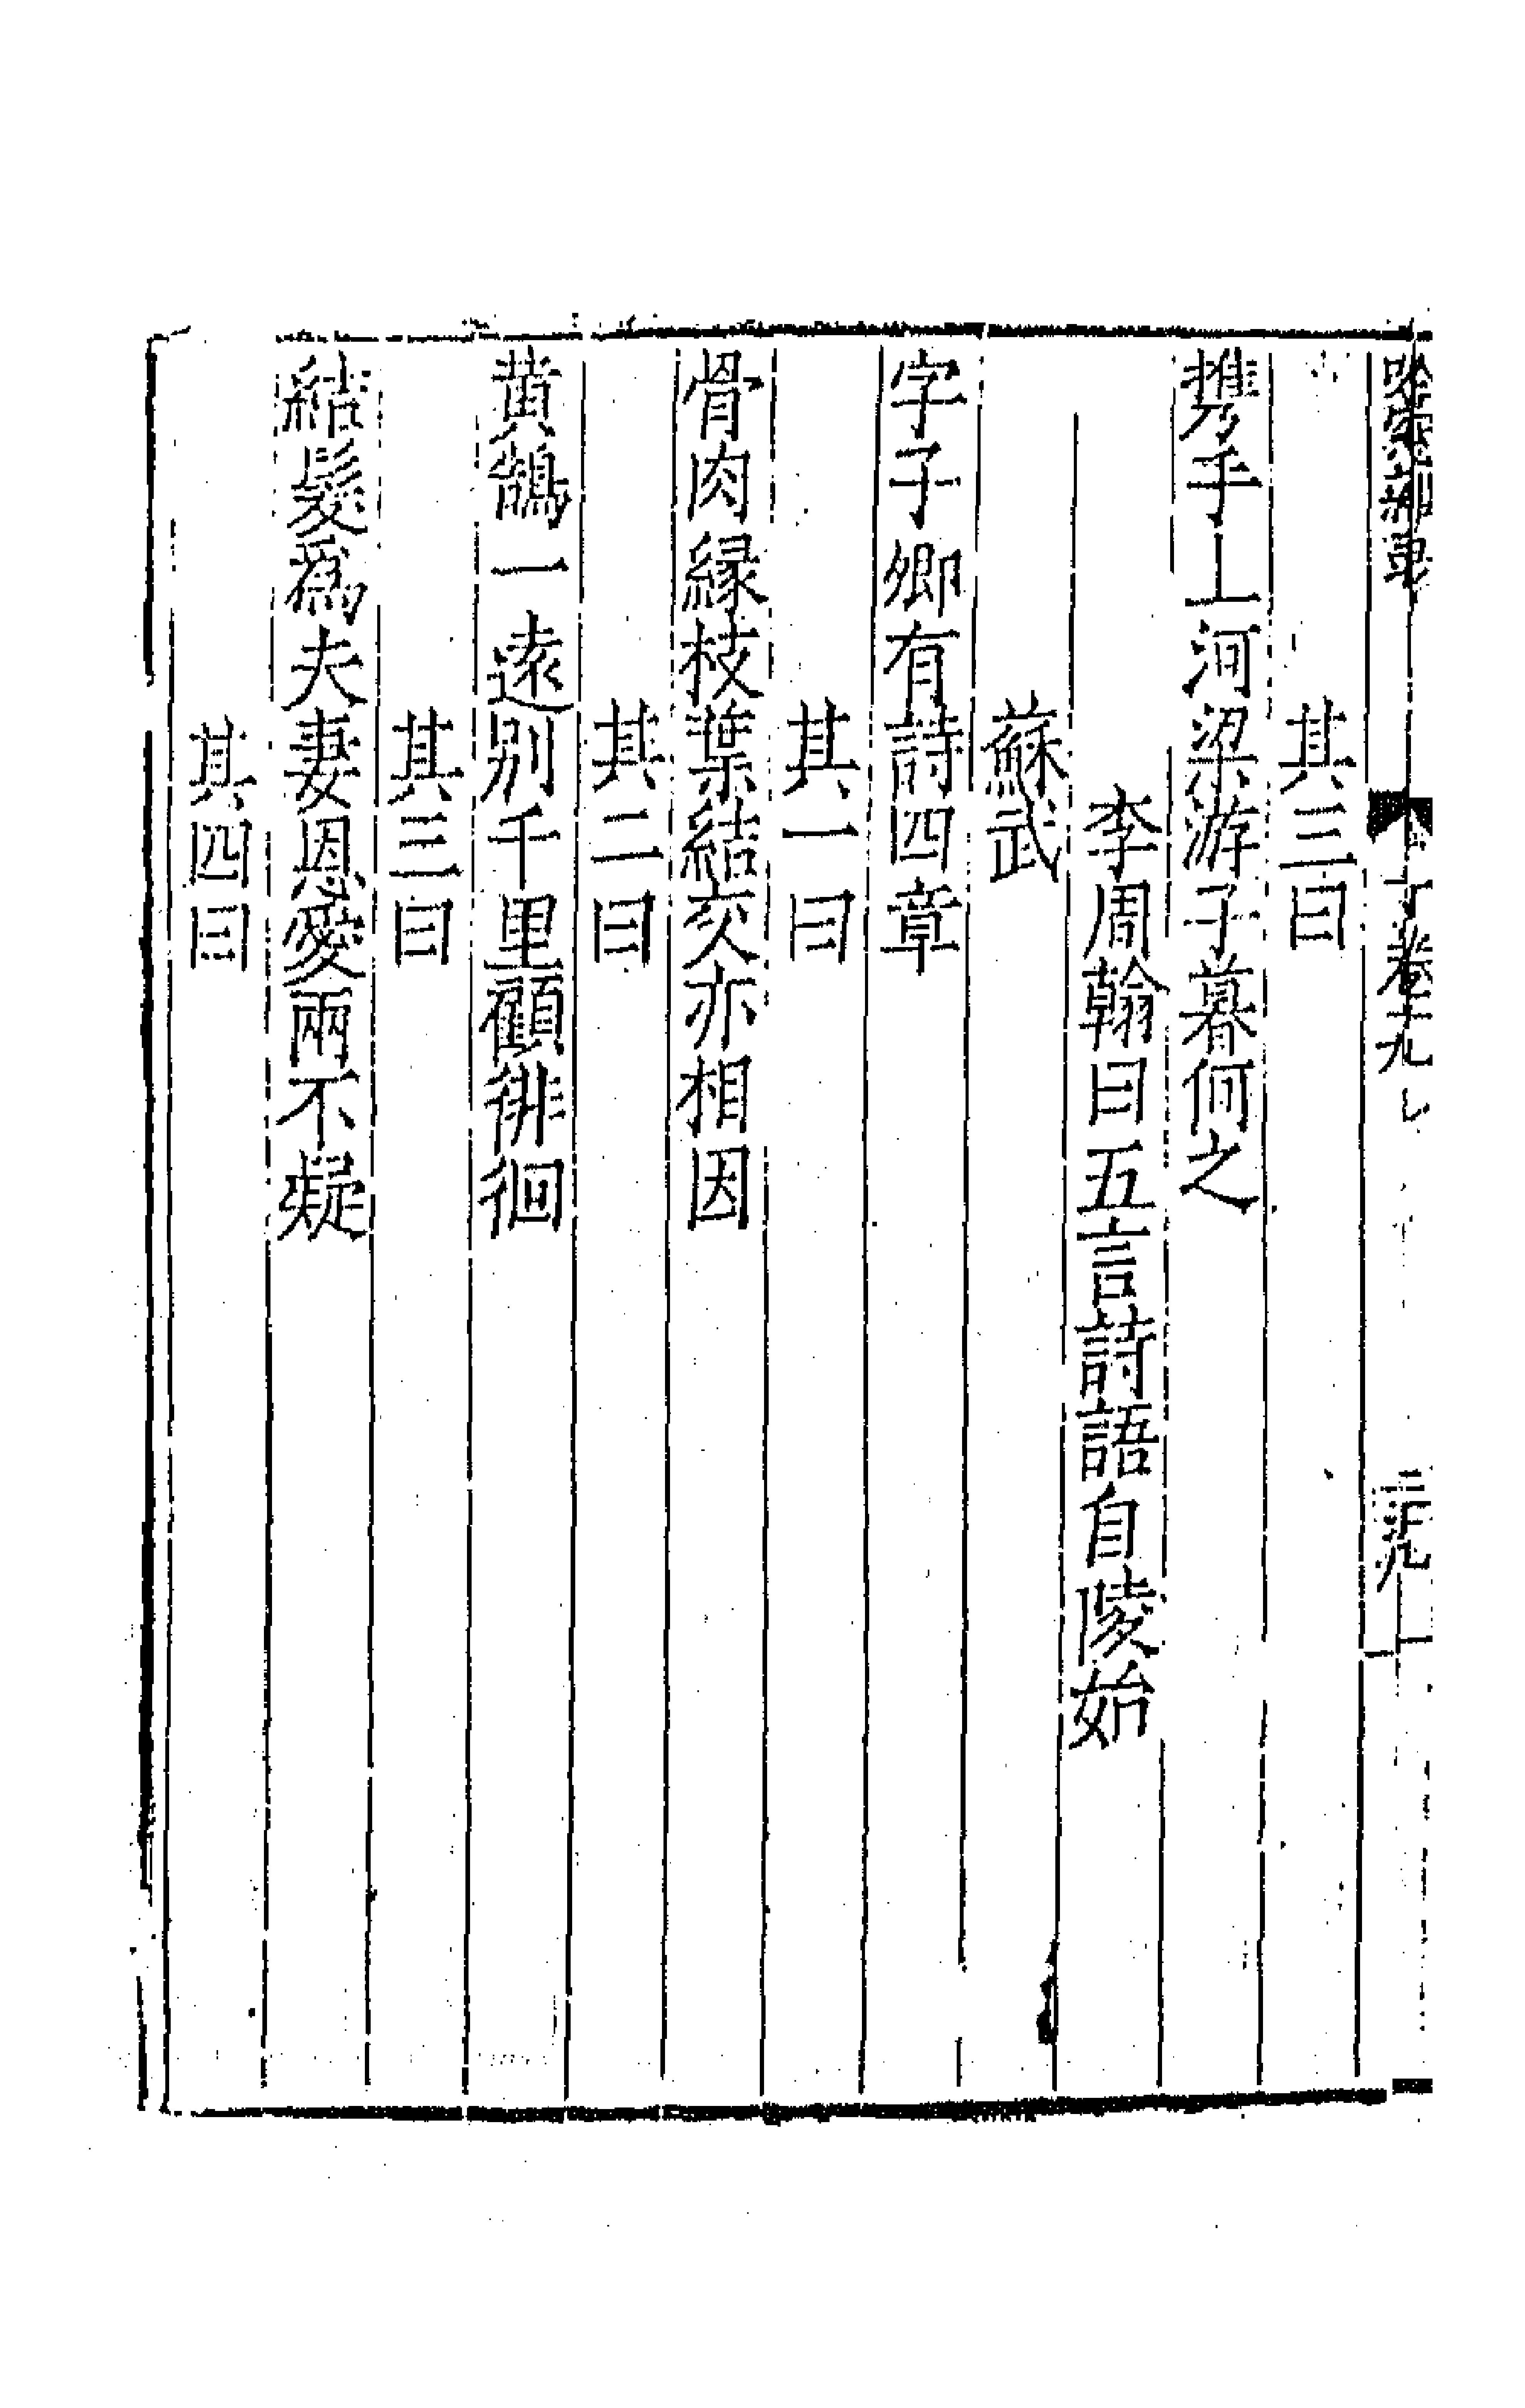 其三曰
携手上河梁游子暮何之
李周翰曰五言詩語自陵始
蘇武
字子卿有詩四章
其一曰
骨肉縁枝葉結交亦相因
其二曰
黃鵠一逺别千里顧徘徊
其三曰
結髮爲夫妻恩愛兩不疑
其四曰